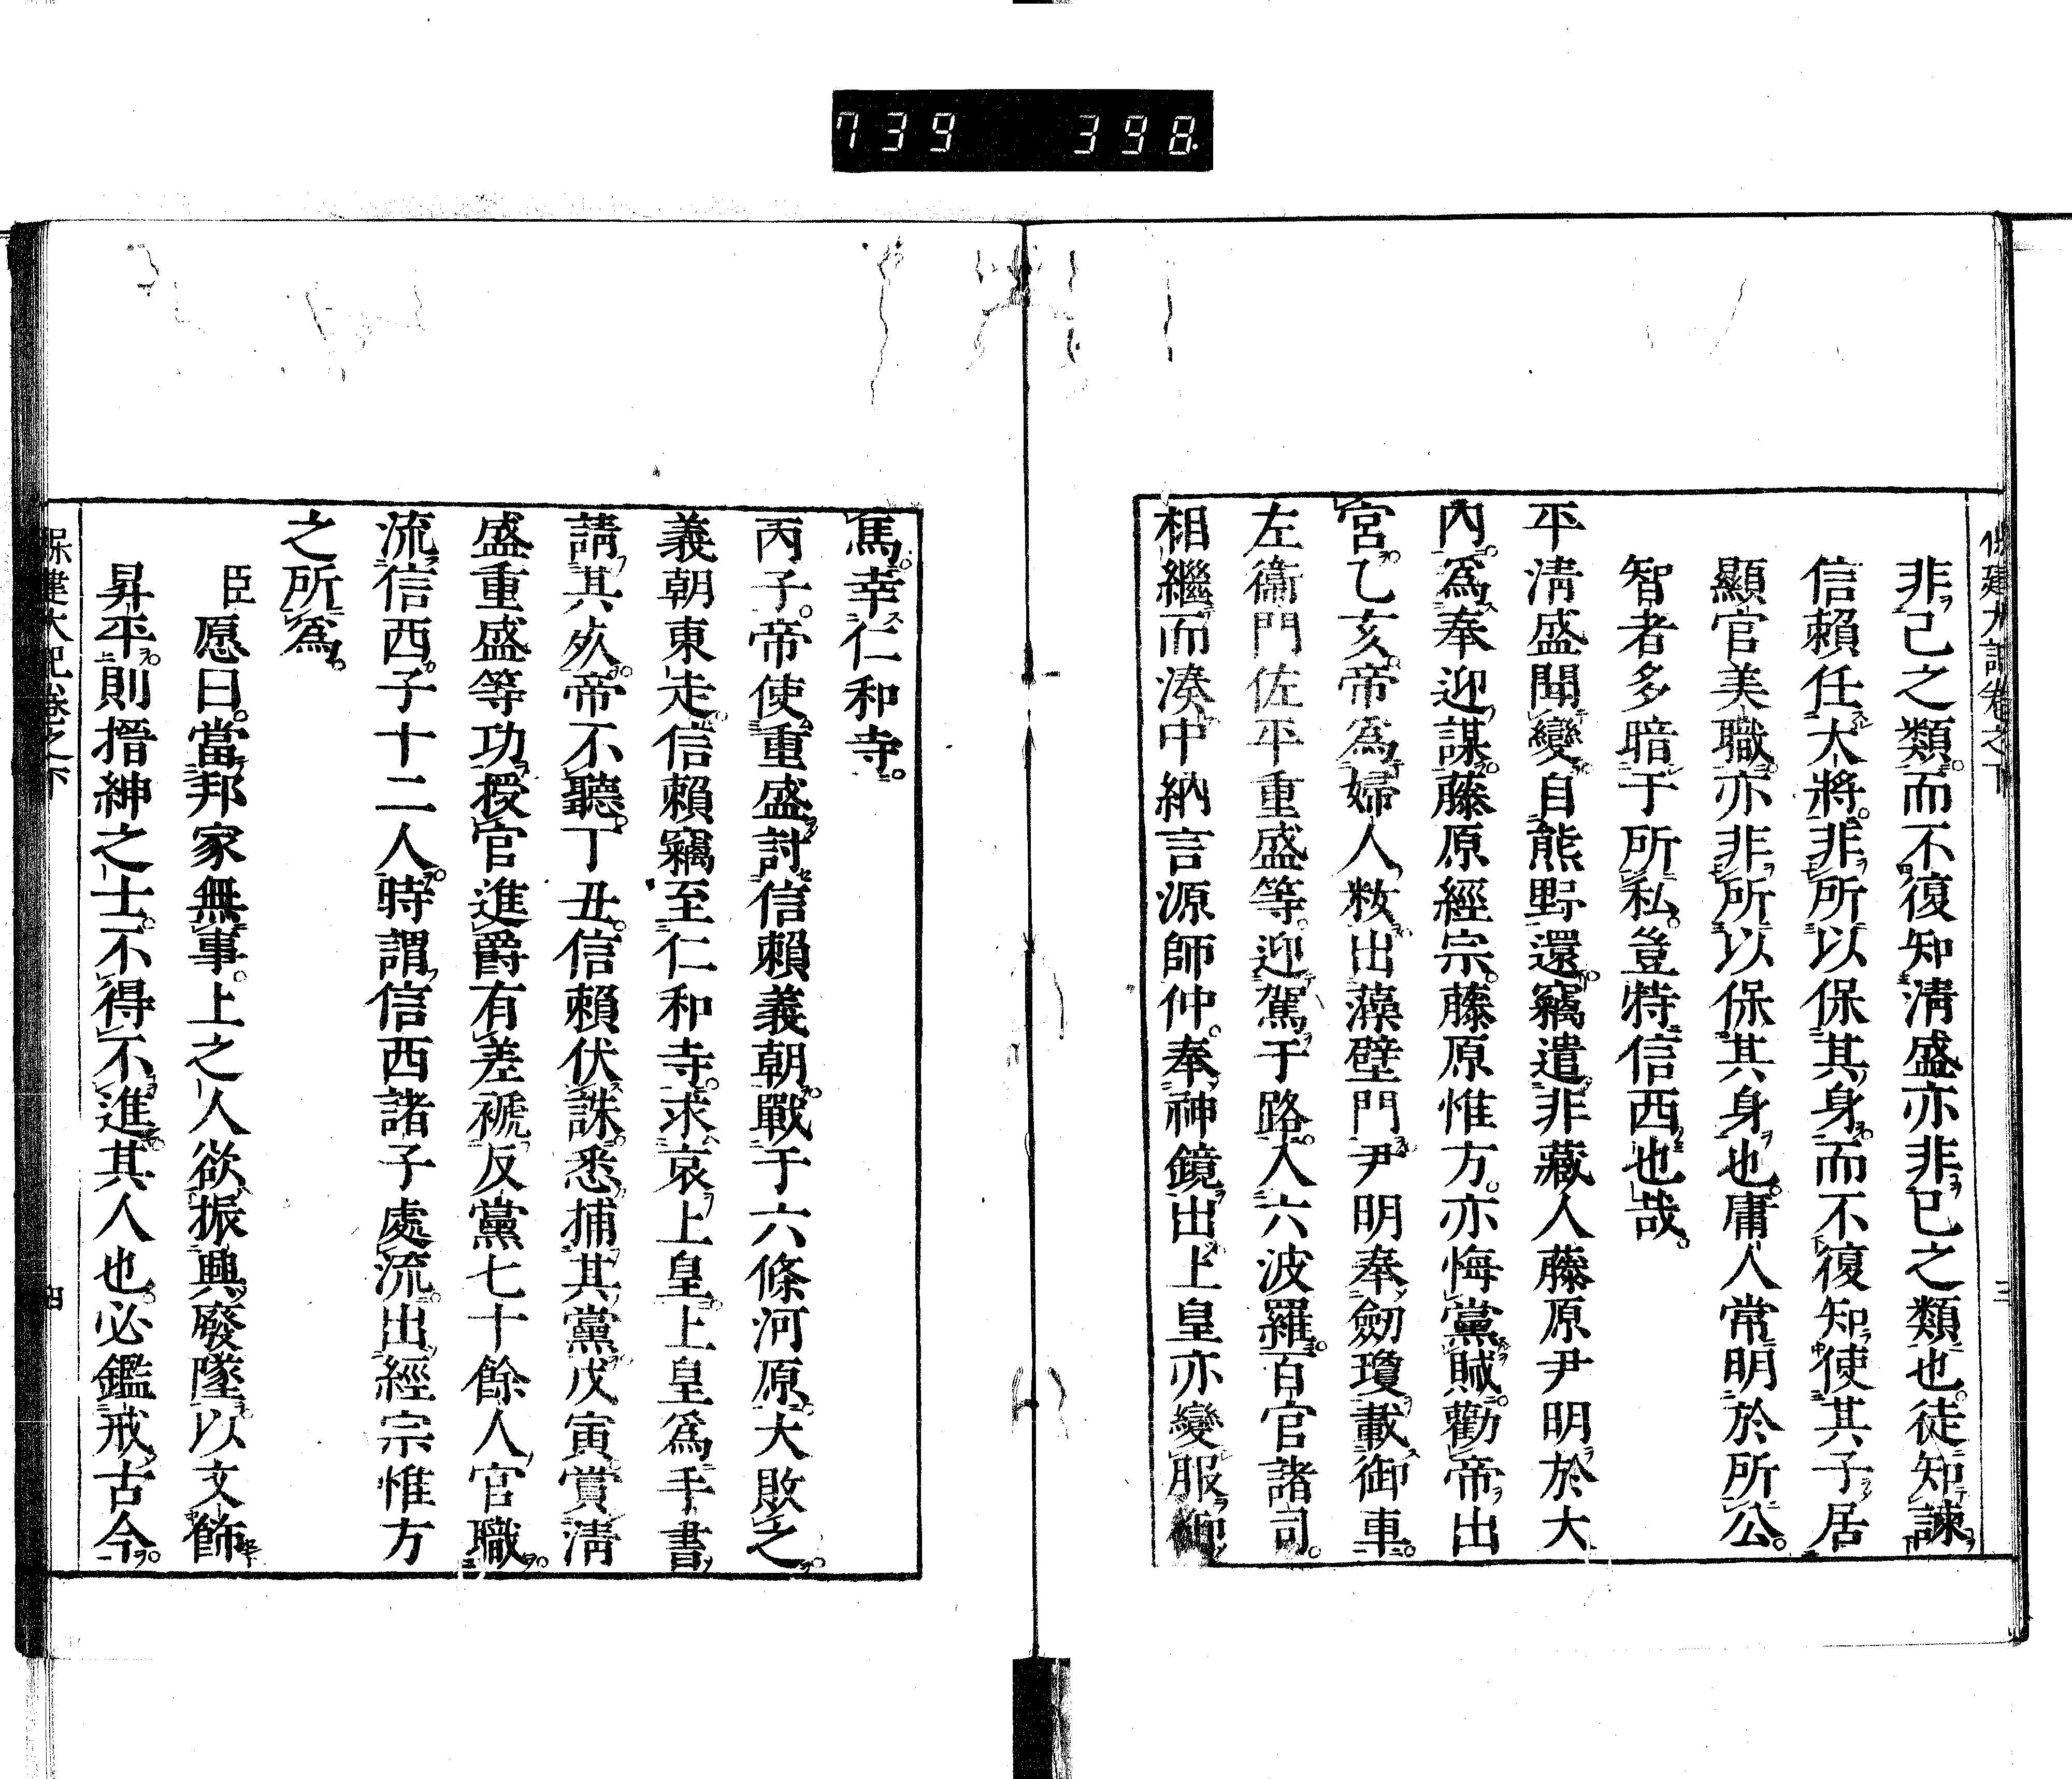 739 398
保建大記卷之下 三
非己之類。而不復知淸盛亦非己之類也。徒知諫
信賴任大將。非所以保其身。而不復知使其子居
顯官美職。亦非所以保其身也。庸人常明於所公。
智者多暗于所私。豈特信西也哉。
平淸盛聞變。自熊野還。竊遣非藏人藤原尹明於大
內。爲奉迎謀。藤原經宗。藤原惟方。亦悔黨賊。勸帝出
宮。乙亥。帝爲婦人粧。出藻壁門。尹明奉劒瓊載御車。
左衞門佐平重盛等。迎駕于路。入六波羅。百官諸司。
相繼而湊。中納言源師仲。奉神鏡出。上皇亦變服御
馬。幸仁和寺。
丙子。帝使重盛討信賴義朝。戰于六條河原。大敗之。
義朝東走。信賴竊至仁和寺。求哀上皇。上皇爲手書
請其死。帝不聽。丁丑。信賴伏誅。悉捕其黨。戊寅。賞淸
盛重盛等功。授官進爵有差。褫反黨七十餘人官職。
流信西子十二人。時謂信西諸子處流。出經宗惟方
之所爲。
臣愿曰。當邦家無事。上之人欲振興廢墜。以文飾
昇平。則搢紳之士。不得不進其人也。必鑑戒古今
保建大記卷之下 四